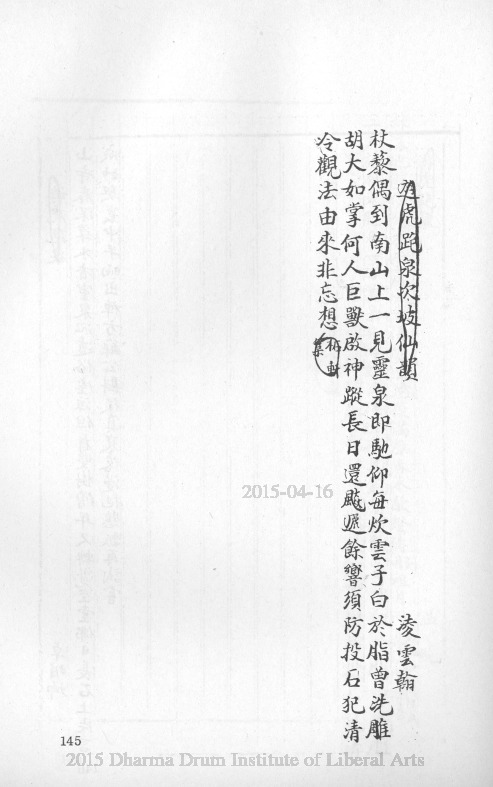 虎跑泉次坡仙韻
凌雲翰
杖藜偶到南山上一見靈泉即馳仰每炊雲子白於脂曾洗雕
胡大如掌何人巨獸啟神蹤長日還飈遞餘響須防投石犯清
冷觀法由來非忘想 柘軒集
2015-04-16
145
2015 Dharma Drum Institute of Liberal Arts